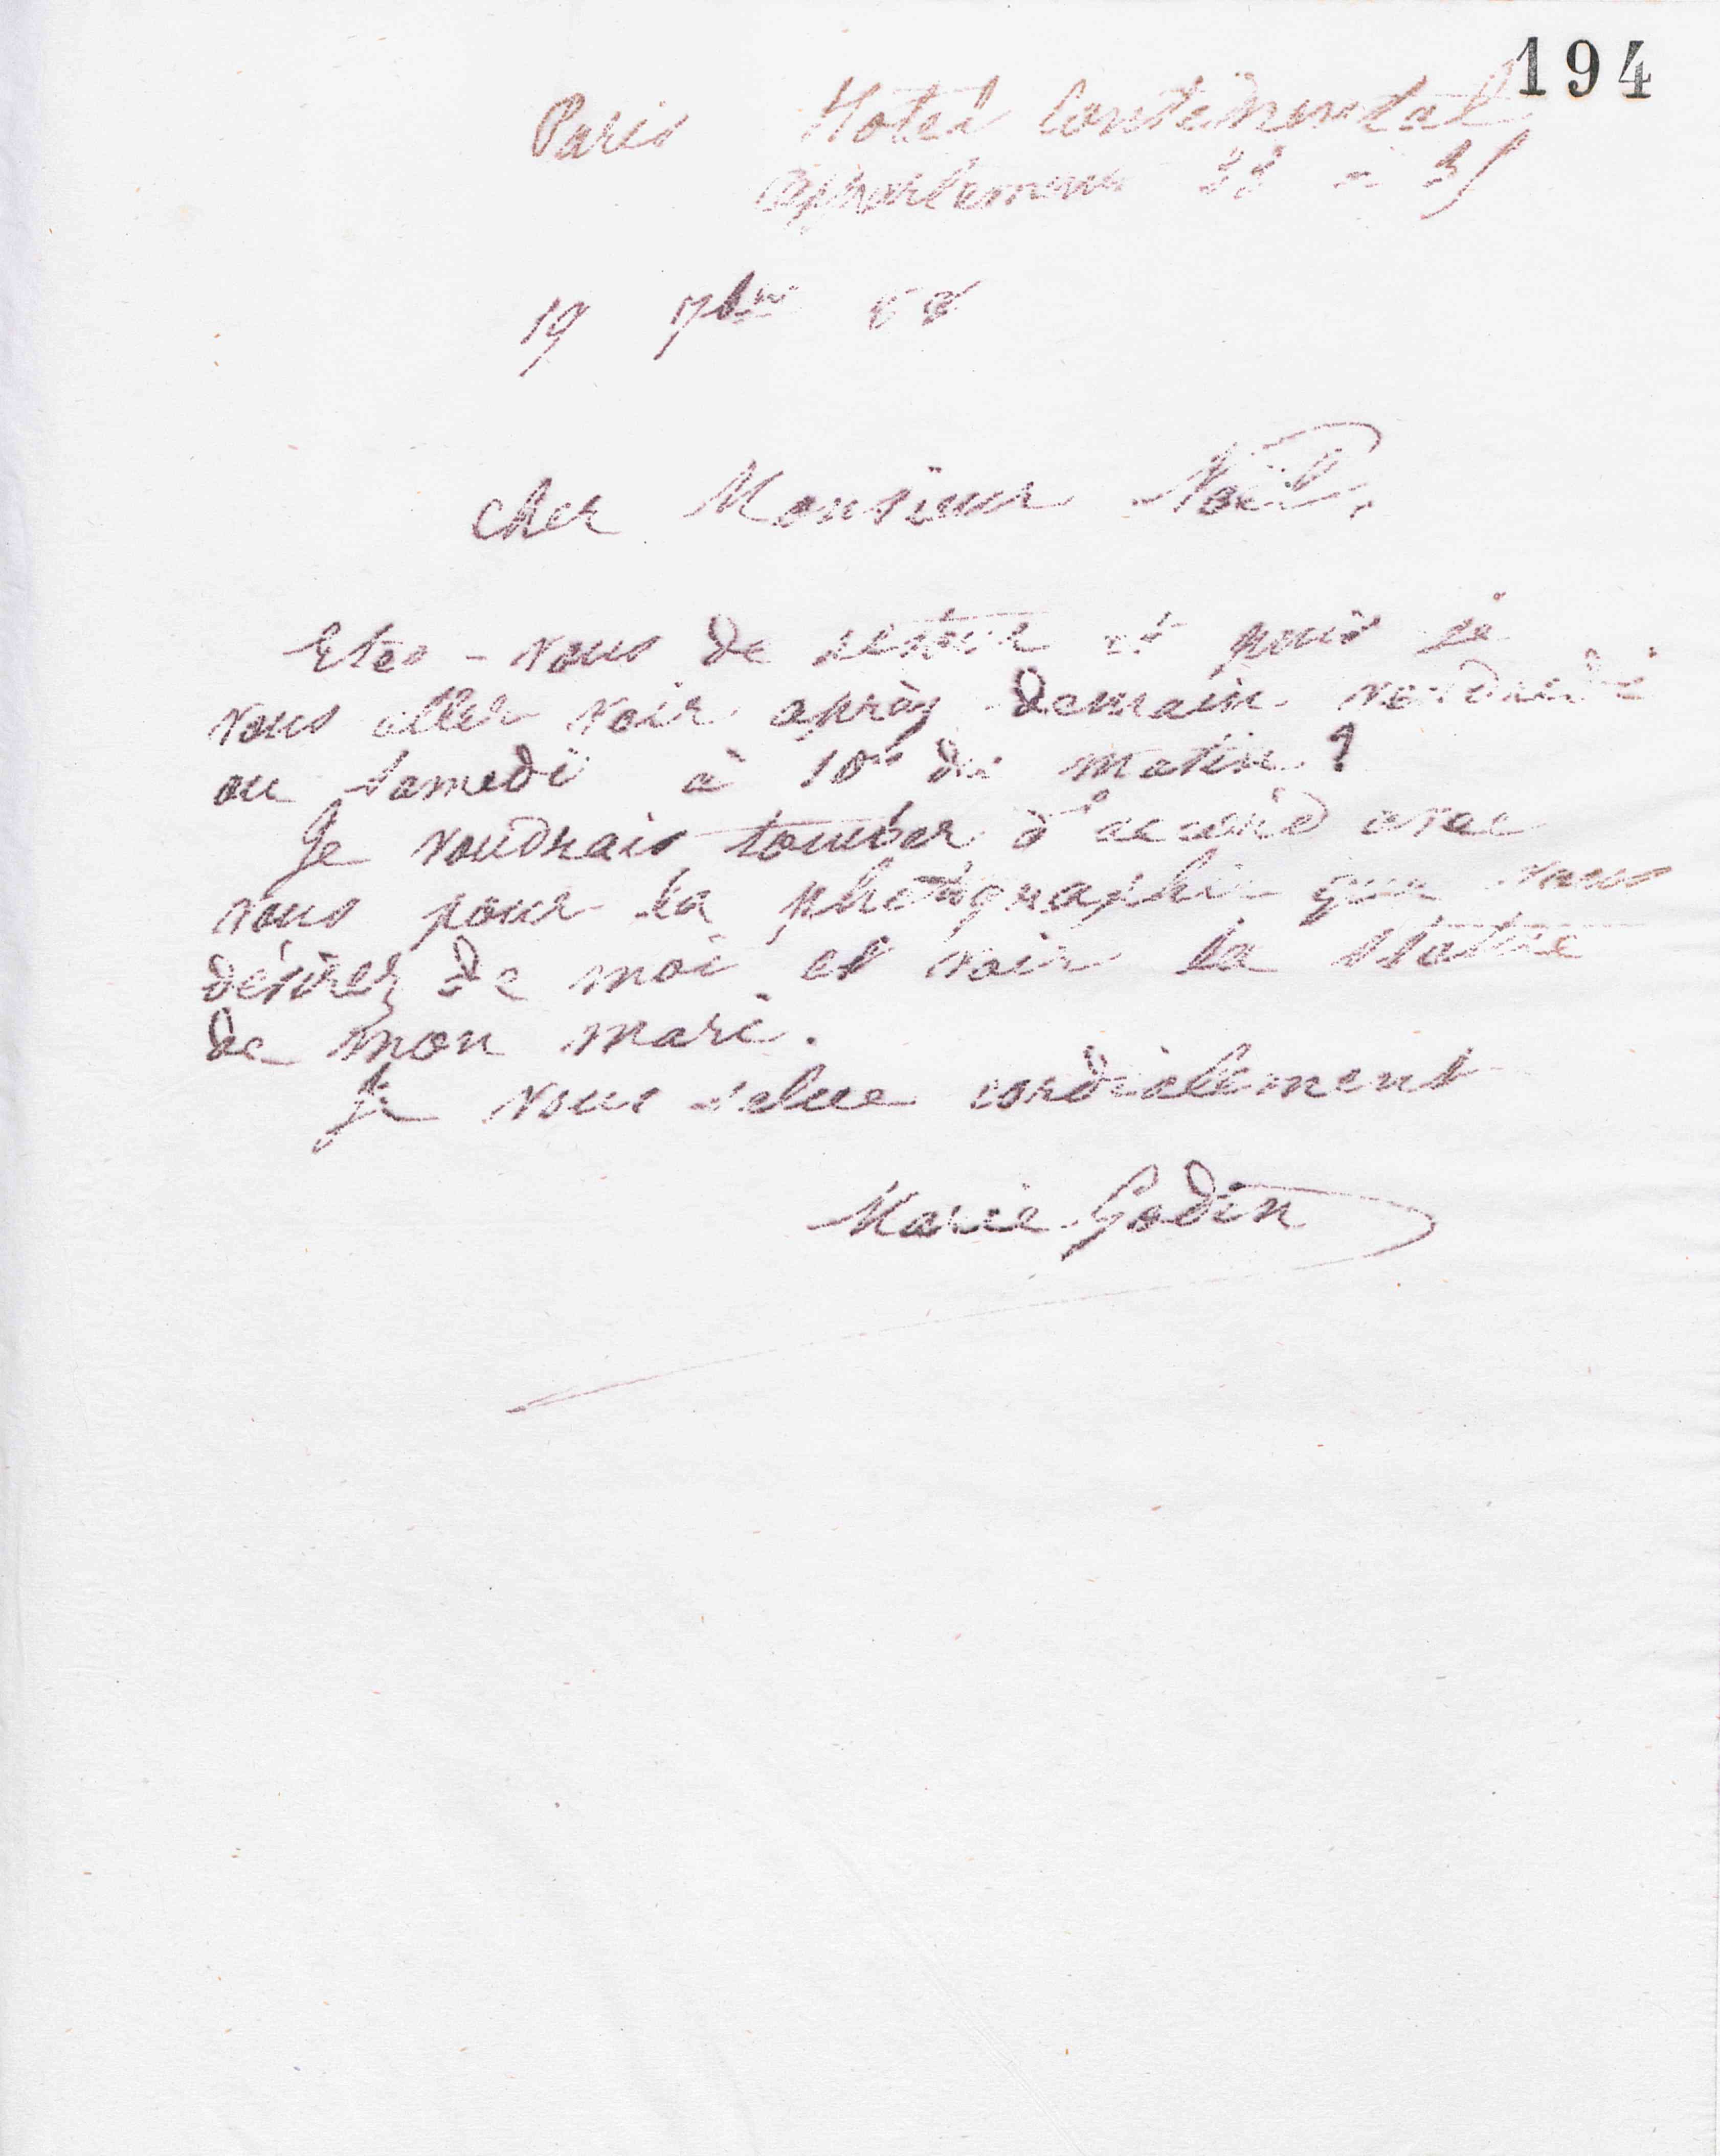 194
Paris Hotel Continental
appartement 33 - 35
19 7bre 88
Cher Monsieur Noël,
Etes-vous de retour et puis je
vous aller voir après-demain vendredi
ou samedi à 10h du matin ?
Je voudrais tomber d'accord avec
vous pour la photographie que vous
désirez de moi et voir la statue
de mon mari.
Je vous salue cordialement
Marie Godin